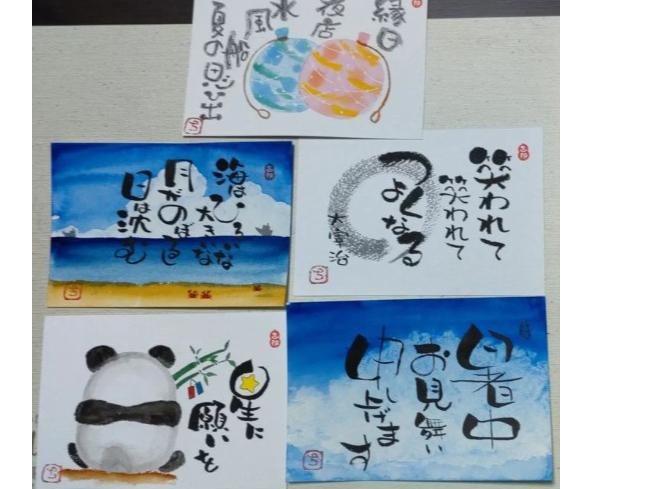 縁日
夜店
水
風船
夏の思ひ出
海はひろいな
大きいな
月がのぼるし
日は沈む
笑われて
笑われて
つよくなる
太宰治
星に
願いを
暑中
お見舞い
申し上げます